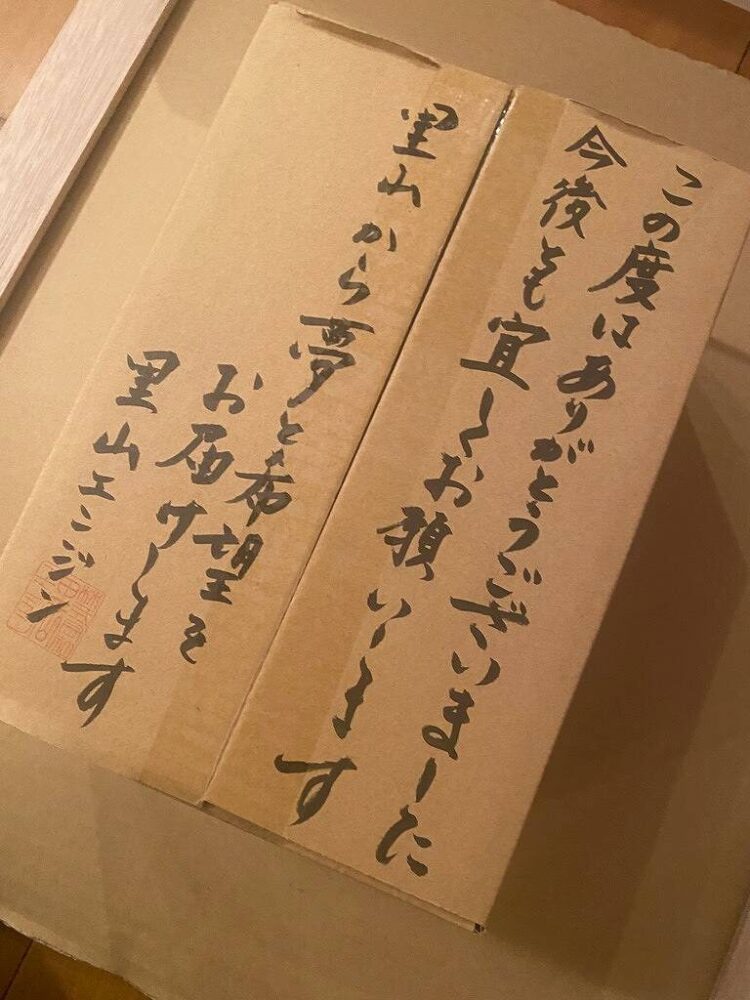 この度はありがとうございました
今後とも宜しくお願いします
里山から夢と希望を
お届けします
里山エンジン